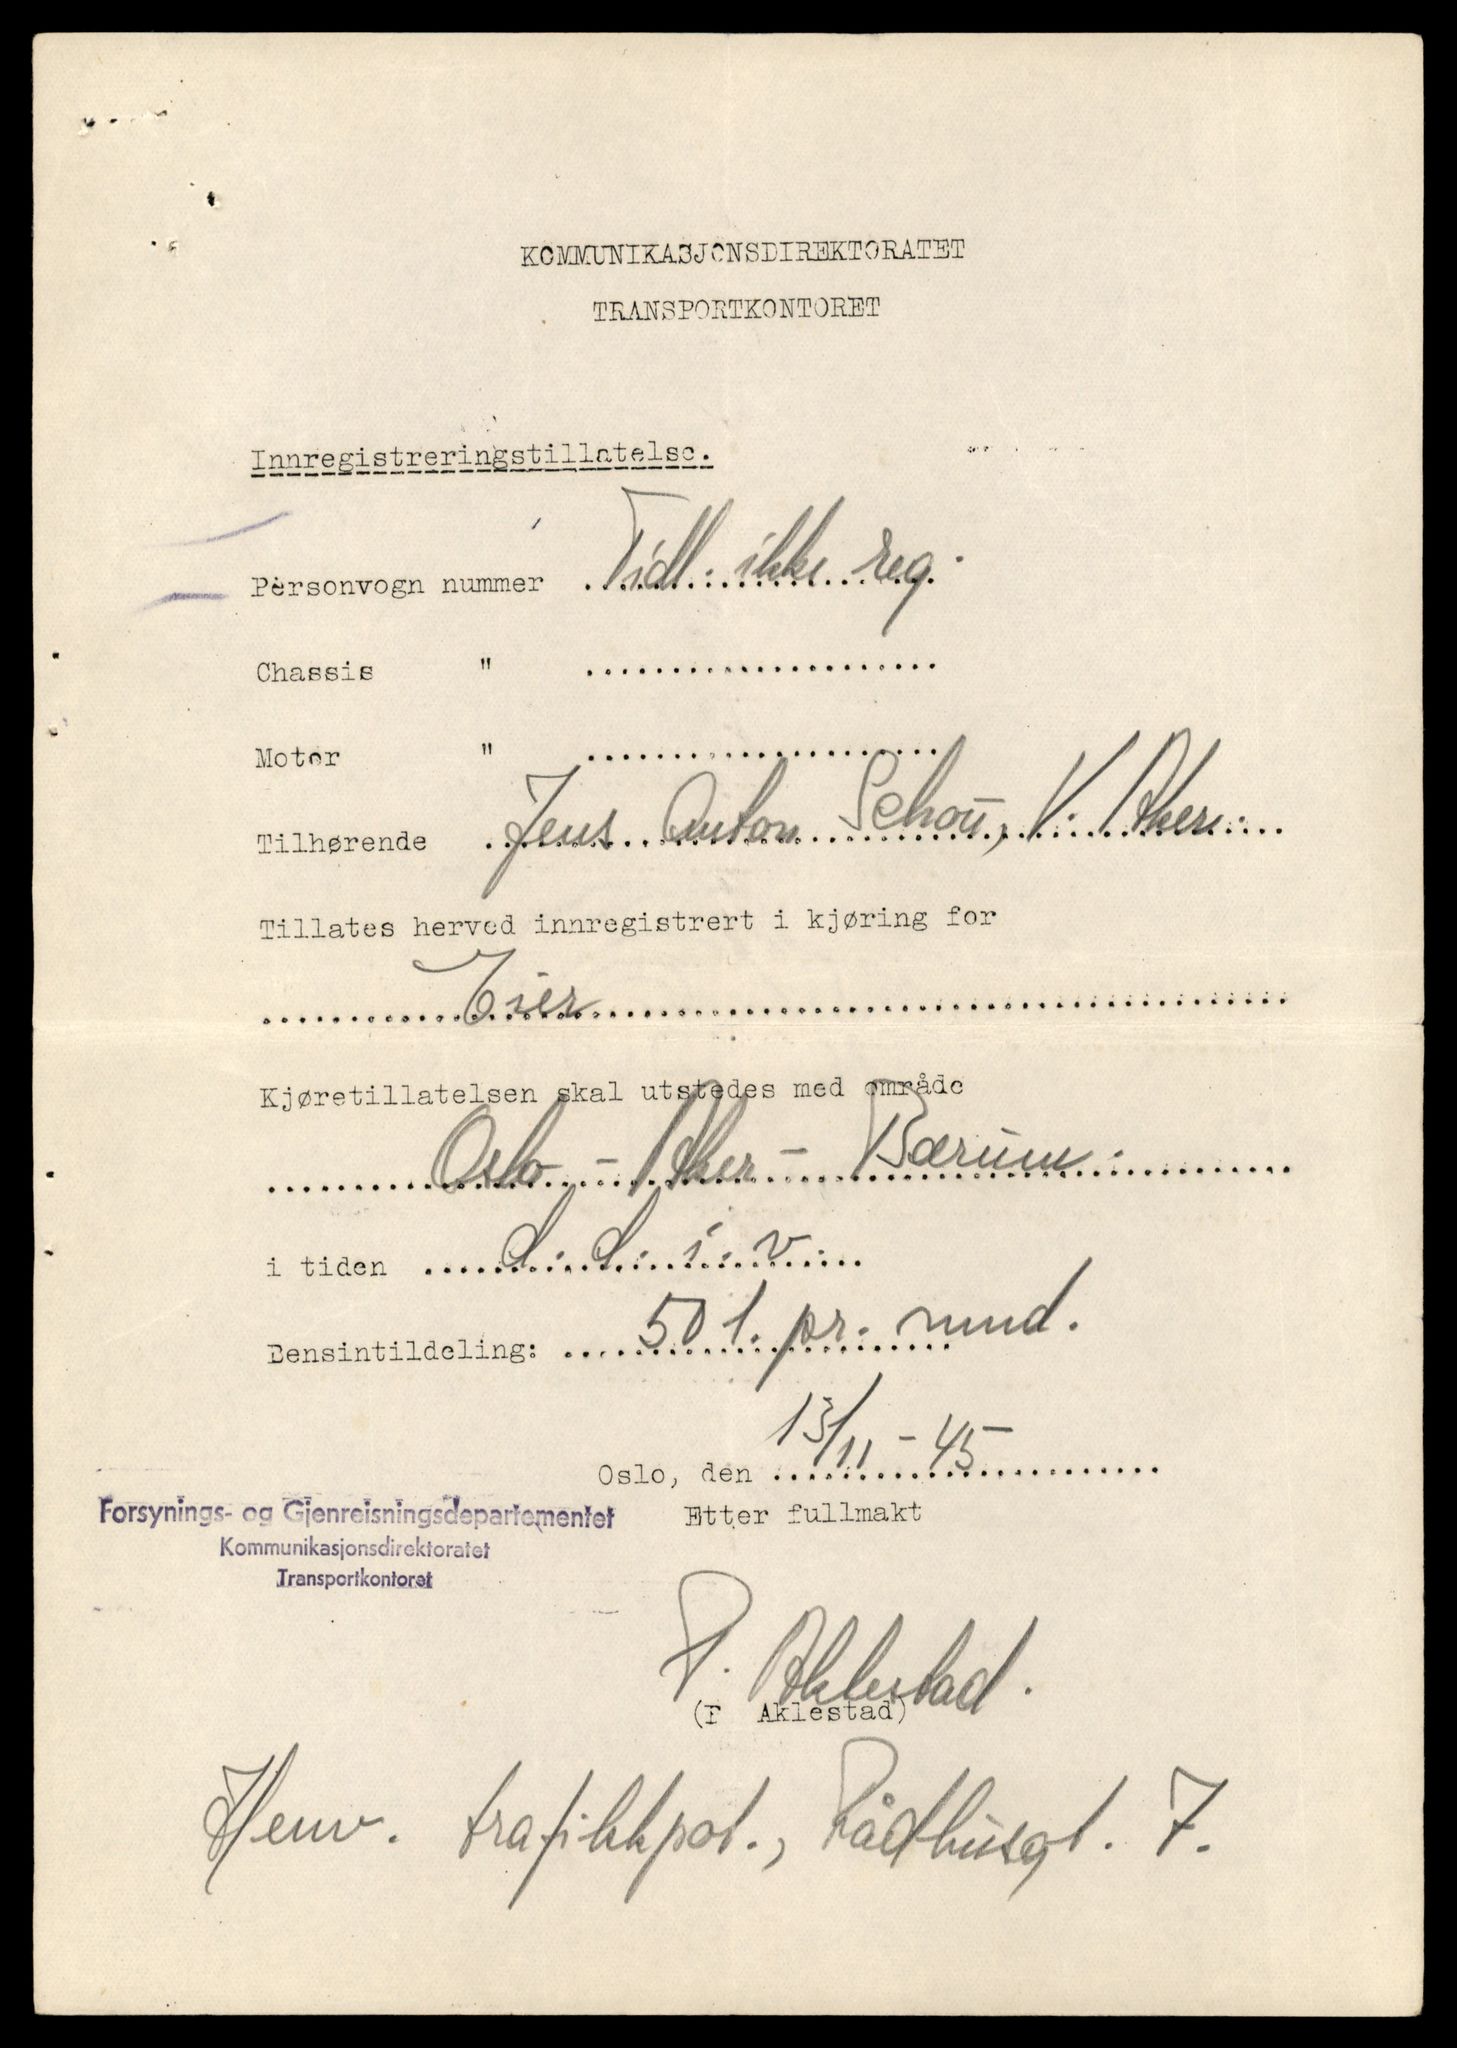 KOMMUNIKASJONSDIREKTORATET
TRANSPORTKONTORET
Innregistreringstillatelse.
Personvogn nummer Tidl. ikke reg.
Chassis " ......................
Motor " ......................
Tilhørende Jens Anton Schou, V. Aker.
Tillates herved innregistrert i kjøring for
Eier
Kjøretillatelsen skal utstedes med område
Oslo - Aker - Bærum.
i tiden d. d. i. v.
Bensintildeling: 50 l. pr. mnd.
Oslo, den 13/11 - 45
Forsynings- og Gjenreisningsdepartementet
Kommunikasjonsdirektoratet
Transportkontoret
Etter fullmakt
P. Aklestad.
(P Aklestad)
Henv. trafikkpol., Rådhusgt. 7.